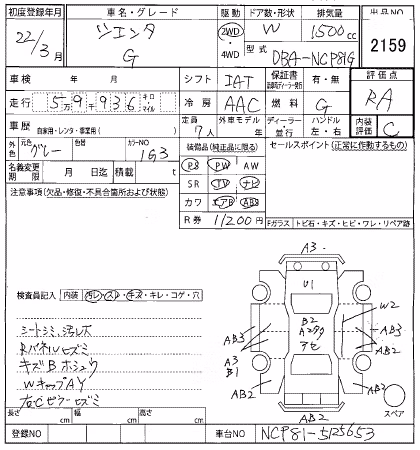 初度登録年月 車名・グレード 駆動 ドア数・形状 排気量 出品NO
22/3月 シエンタ G 2WD・4WD W 1500cc 2159
型式 DBA-NCP81G
車検 年 月 シフト IAT 保証書 有・無 評価点
走行 5万9936 キロ・マイル 冷房 AAC 燃料 G RA
車歴 自家用・レンタ・事業用( ) 定員 7人 外車モデル 年 ディーラー・並行 ハンドル 左・右 内装評価 C
外色 元色 グレー 色替 カラーNO 1G3 装備品(純正品に限る) セールスポイント(正常に作動するもの)
名義変更期限 月 日迄 積載 t
PS PW AW
SR TV ナビ
カワ エアB ABS
R券 11200円
注意事項(欠品・修復・不具合箇所および状態)
Fガラス トビ石・キズ・ヒビ・ワレ・リペア跡
検査員記入 内装 汚レ・スレ・キズ・キレ・コゲ・穴
シートシミ、汚レ大
Rパネルヒズミ
キズBホシュウ
WキャップAY
右Cピラーヒズミ
A3
U1
B2
W2
AB3
AB3
アセ
A3
B1
AB3
AB2
AB2
AB2
AB2
スペア
長さ cm 幅 cm 高さ cm
登録NO 車台NO NCP81-5125653